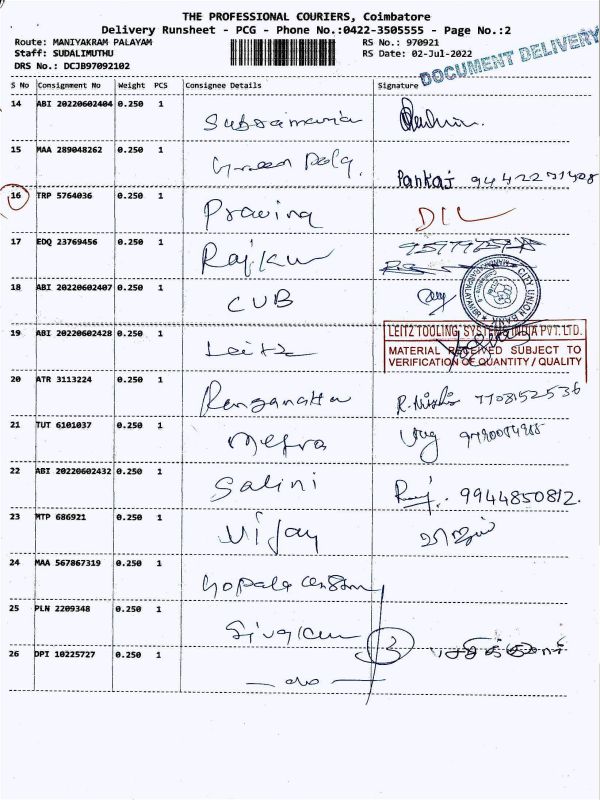 THE PROFESSIONAL COURIERS, Coimbatore
Delivery Runsheet - PCG - Phone No.:0422-3505555 - Page No.:2
Route: MANIYAKRAM PALAYAM RS No.: 970921
Staff: SUDALIMUTHU RS Date: 02-Jul-2022
DRS No.: DCJB97092102
DOCUMENT DELIVERY
S No Consignment No Weight PCS Consignee Details Signature
14 ABI 20220602404 0.250 1
15 MAA 289048262 0.250 1 Green Pankaj
16 TRP 5764036 0.250 1 Pravina DIL
17 EDQ 23769456 0.250 1 Rajkum
18 ABI 20220602407 0.250 1 CUB
CITY UNION BANK
19 ABI 20220602428 0.250 1 Leitz
LEITZ TOOLING SYSTEMS INDIA PVT. LTD.
MATERIAL RECEIVED SUBJECT TO
VERIFICATION OF QUANTITY / QUALITY
20 ATR 3113224 0.250 1 7708152536
21 TUT 6101037 0.250 1
22 ABI 20220602432 0.250 1 Salini 9944850812.
23 MTP 686921 0.250 1 Vijay
24 MAA 567867319 0.250 1
25 PLN 2209348 0.250 1
26 DPI 10225727 0.250 1